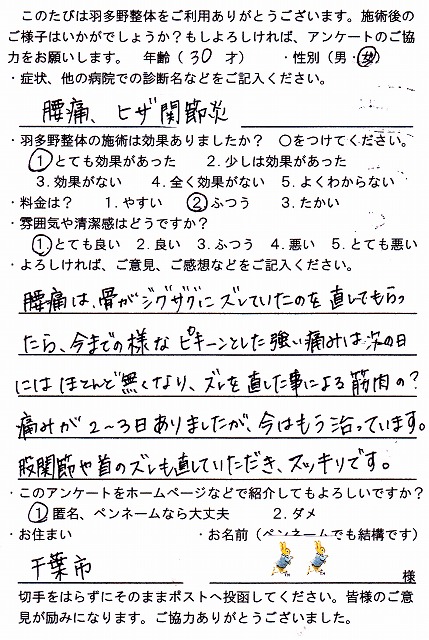 このたびは羽多野整体をご利用ありがとうございます。施術後の
ご様子はいかがでしょうか？もしよろしければ、アンケートのご協
力をお願いします。　年齢（ 30 才）　　・性別（男・女）
・症状、他の病院での診断名などをご記入ください。
腰痛、ヒザ関節炎
・羽多野整体の施術は効果ありましたか？　〇をつけてください。
1 とても効果があった　　2. 少しは効果があった
3. 効果がない　　4. 全く効果がない　5. よくわからない
・料金は？　1. やすい　2 ふつう　3. たかい
・雰囲気や清潔感はどうですか？
1 とても良い　2. 良い　3. ふつう　4. 悪い　5. とても悪い
・よろしければ、ご意見、ご感想などをご記入ください。
腰痛は、骨がジグザグにズレていたのを直してもらっ
たら、今までの様なピキーンとした強い痛みは次の日
にはほとんど無くなり、ズレを直した事による筋肉の？
痛みが2〜3日ありましたが、今はもう治っています。
股関節や首のズレも直していただき、スッキリです。
・このアンケートをホームページなどで紹介してもよろしいですか？
1 匿名、ペンネームなら大丈夫　　2. ダメ
・お住まい　　・お名前（ペンネームでも結構です）
千葉市　　様
切手をはらずにそのままポストへ投函してください。皆様のご意
見が励みになります。ご協力ありがとうございました。